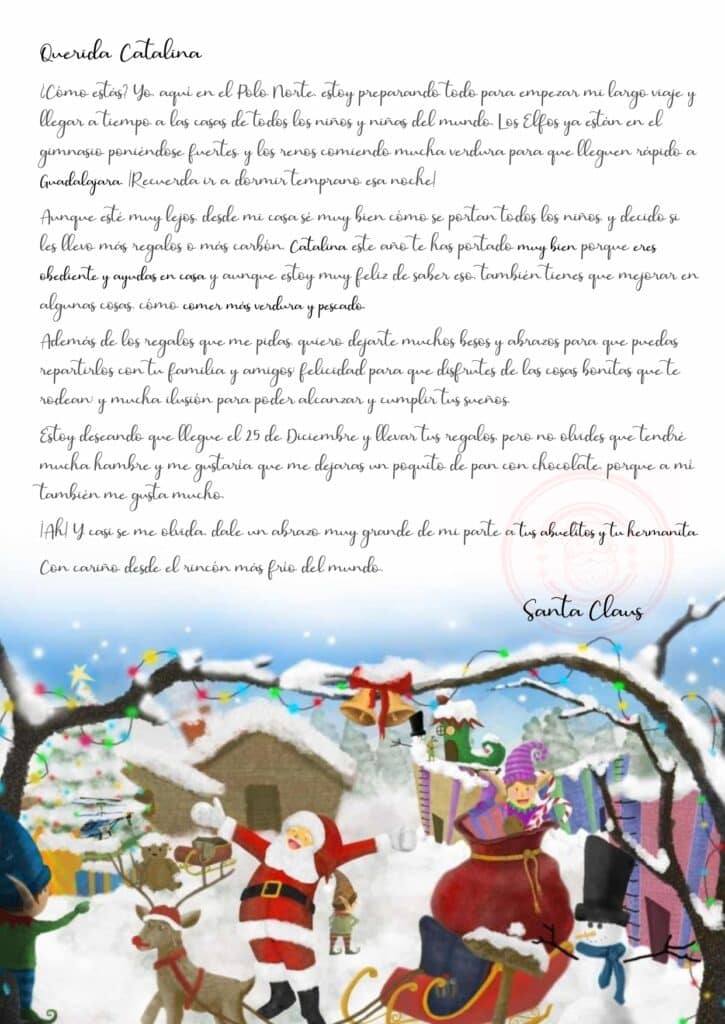 Querida Catalina
¿Cómo estás? Yo, aquí en el Polo Norte, estoy preparando todo para empezar mi largo viaje y
llegar a tiempo a las casas de todos los niños y niñas del mundo. Los Elfos ya están en el
gimnasio poniéndose fuertes, y los renos comiendo mucha verdura para que lleguen rápido a
Guadalajara. ¡Recuerda ir a dormir temprano esa noche!
Aunque esté muy lejos, desde mi casa sé muy bien cómo se portan todos los niños, y decido si
les llevo más regalos o más carbón. Catalina este año te has portado muy bien porque eres
obediente y ayudas en casa y aunque estoy muy feliz de saber eso, también tienes que mejorar en
algunas cosas, cómo comer más verdura y pescado.
Además de los regalos que me pidas, quiero dejarte muchos besos y abrazos para que puedas
repartirlos con tu familia y amigos; felicidad para que disfrutes de las cosas bonitas que te
rodean; y mucha ilusión para poder alcanzar y cumplir tus sueños.
Estoy deseando que llegue el 25 de Diciembre y llevar tus regalos, pero no olvides que tendré
mucha hambre y me gustaría que me dejaras un poquito de pan con chocolate, porque a mi
también me gusta mucho.
¡Ah! Y casi se me olvida, dale un abrazo muy grande de mi parte a tus abuelitos y tu hermanita.
Con cariño desde el rincón más frío del mundo,
Santa Claus